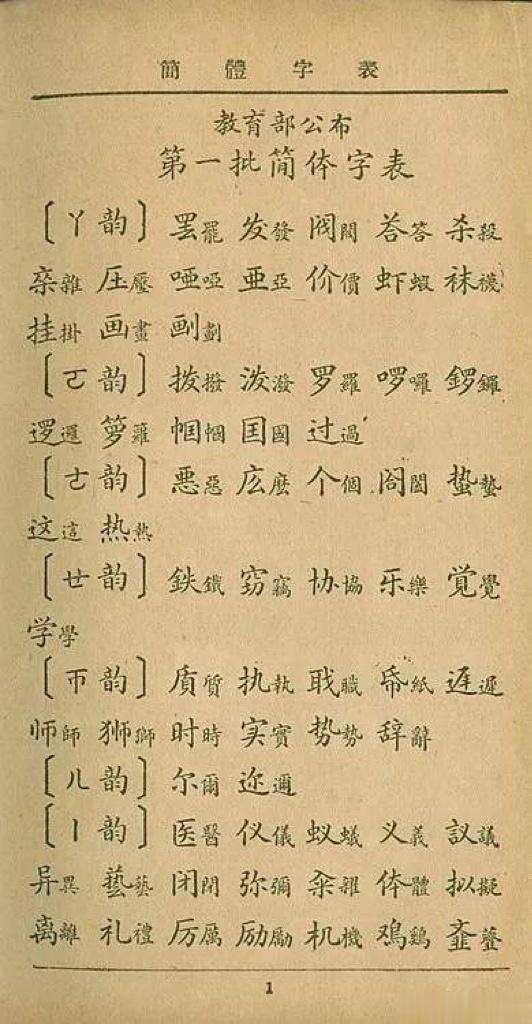 簡體字表
教育部公布
第一批简体字表
〔ㄚ韵〕罢罷 发發 阀閥 荅答 杀殺
杂雜 压壓 哑啞 亜亞 价價 虾蝦 袜襪
挂掛 画畫 㓰劃
〔ㄛ韵〕拨撥 泼潑 罗羅 啰囉 锣鑼
逻邏 箩籮 帼幗 囯國 过過
〔ㄜ韵〕恶惡 庅麼 个個 蛰蟄
这這 热熱
〔ㄝ韵〕鉄鐵 窃竊 协協 乐樂 覚覺
学學
〔ㄭ韵〕质質 执執 职職 帋紙 迟遲
师師 狮獅 时時 实實 势勢 辞辭
〔ㄦ韵〕尔爾 迩邇
〔ㄧ韵〕医醫 仪儀 蚁蟻 义義 议議
异異 艺藝 闭閉 弥彌 籴糴 体體 拟擬
离離 礼禮 厉厲 励勵 机機 鸡鷄
1